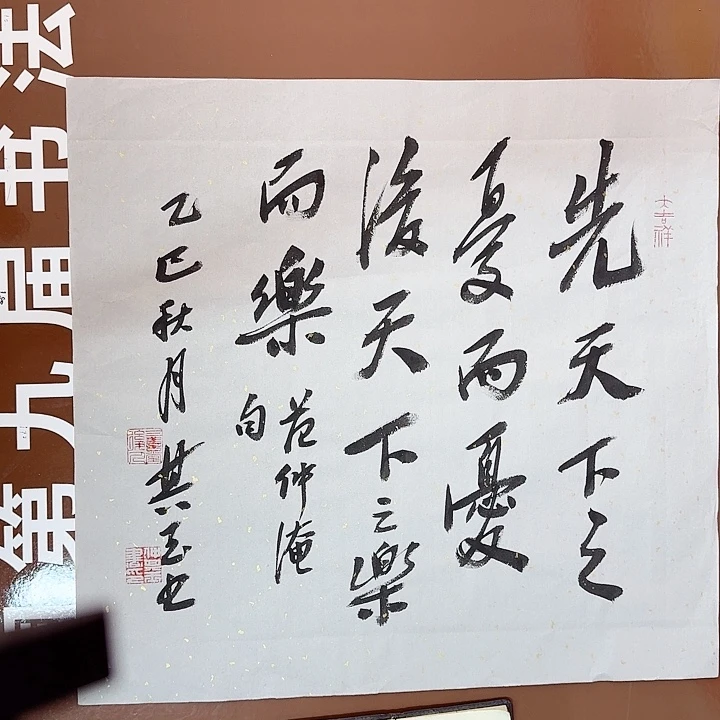 大吉祥
先天下之
憂而憂
後天下之樂
而樂
范仲淹
句
乙巳秋月其玉书
第九届书法